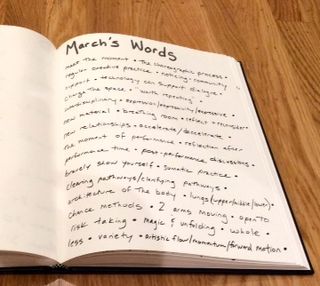 March's Words
meet the moment • The choreographic process •
regular creative practice • noticing • community
support • technology can support dialogue •
change the space • "worth repeating" •
multidisciplinary • expression/opportunity/expressive •
new material • breathing room • reflect + reconsider
new relationships • accelerate/decelerate •
the moment of performance • reflection after
performance time • post-performance discussions •
bravely show yourself • somatic practice •
clearing pathways/clarifying pathways •
architecture of the body • lungs (upper/middle/lower) •
chance methods • 2 arms moving • open to
risk taking • magic & unfolding • whole •
less • variety • artistic flow/momentum/forward motion •